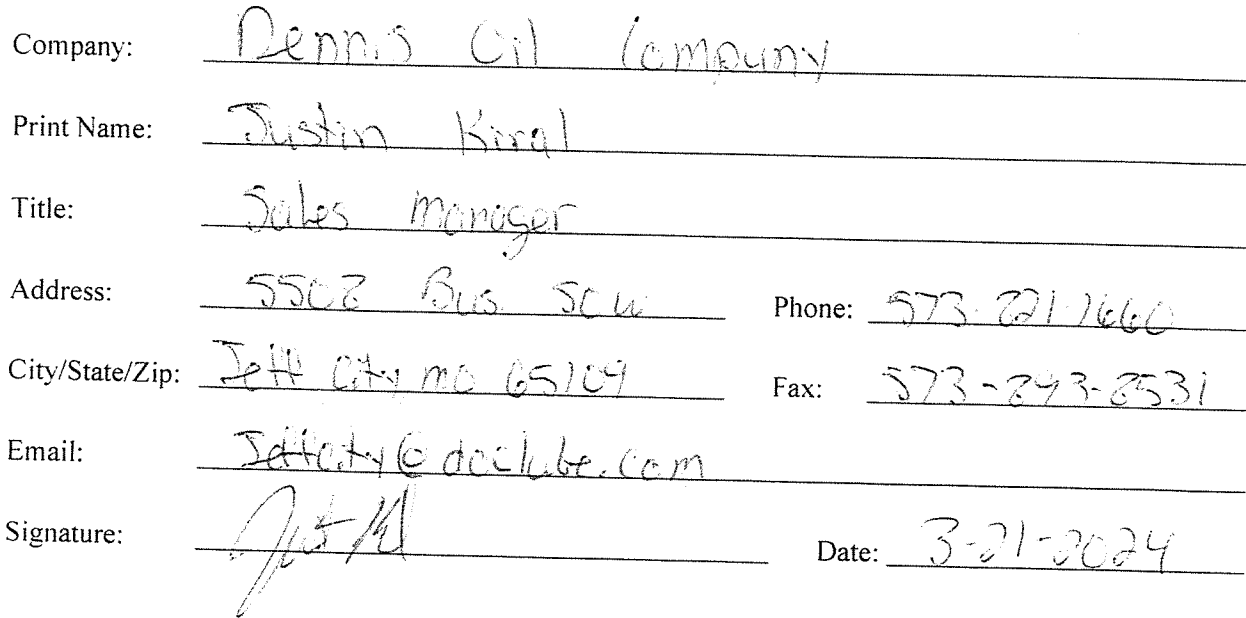 Company: Dennis Oil Company
Print Name: Justin Kiral
Title: Sales Manager
Address: 5508 Bus. 50 W Phone: 573-821-7660
City/State/Zip: Jeff City MO 65109 Fax: 573-893-8531
Email: Jeffcity@doclube.com
Signature:
Date: 3-21-2024